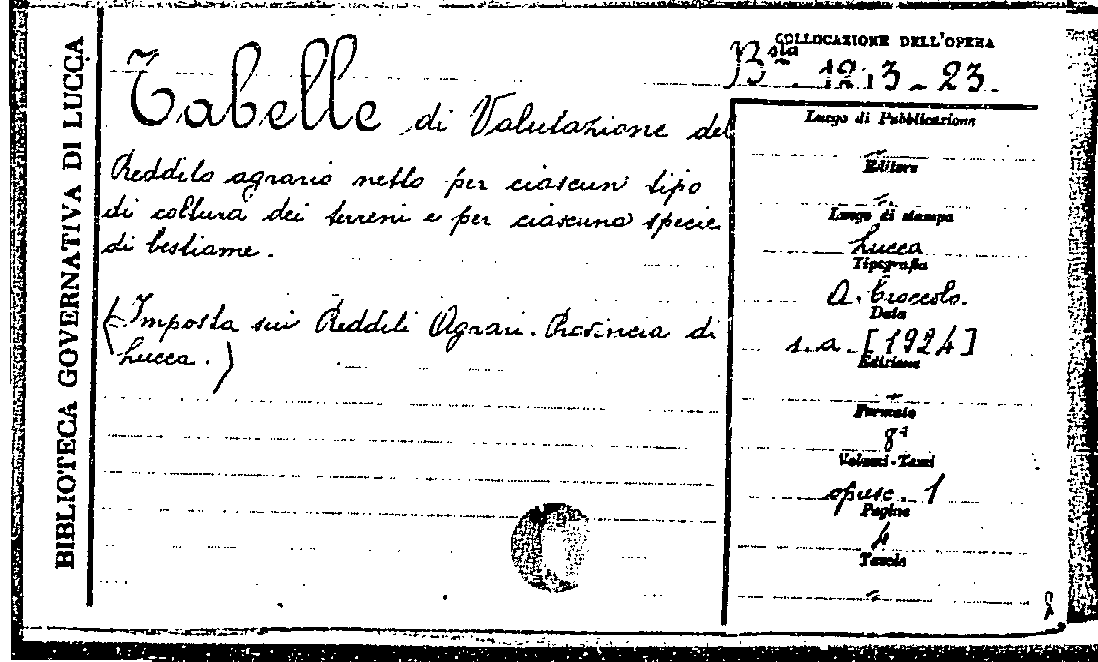 BIBLIOTECA GOVERNATIVA DI LUCCA
Tabelle di Valutazione del
Reddito agrario netto per ciascun tipo
di coltura dei terreni e per ciascuna specie
di bestiame.
(Imposta sui Redditi Agrari. Provincia di
Lucca.)
COLLOCAZIONE DELL'OPERA
Bsta 1213-23.
Luogo di Pubblicazione
~
Editore
~
Luogo di stampa
Lucca
Tipografia
A. Croccolo.
Data
s.a. [1924]
Edizione
~
Formato
8°
Volumi-Tomi
opusc. 1
Pagine
4
Tavole
~